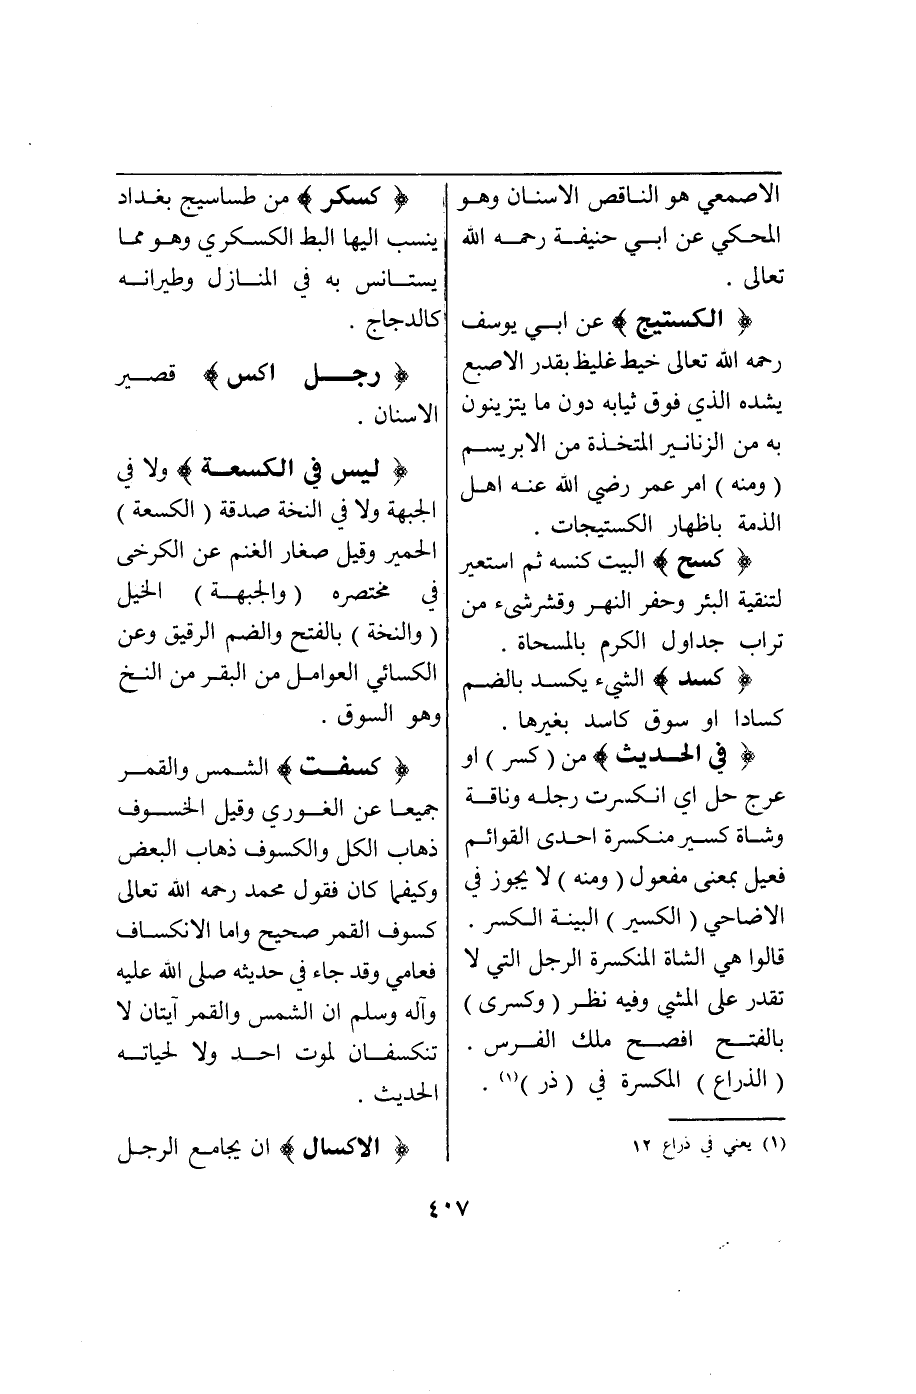 الاصمعي هو الناقص الاسنان وهو
المحكي عن ابي حنيفة رحمه الله
تعالى .
﴿ الكستيج ﴾ عن ابي يوسف
رحمه الله تعالى خيط غليظ بقدر الاصبع
يشده الذي فوق ثيابه دون ما يتزينون
به من الزنانير المتخذة من الابريسم
( ومنه ) امر عمر رضي الله عنه اهل
الذمة باظهار الكستيجات .
﴿ كسح ﴾ البيت كنسه ثم استعير
لتنقية البئر وحفر النهر وقشرشىء من
تراب جداول الكرم بالمسحاة .
﴿ كسد ﴾ الشيء يكسد بالضم
كسادا او سوق كاسد بغيرها .
﴿ في الحديث ﴾ من ( كسر ) او
عرج حل اي انكسرت رجله وناقة
وشاة كسير منكسرة احدى القوائم
فعيل بمعنى مفعول ( ومنه ) لا يجوز في
الاضاحي ( الكسير ) البينة الكسر .
قالوا هي الشاة المنكسرة الرجل التي لا
تقدر على المشي وفيه نظر ( وكسرى )
بالفتح افصح ملك الفرس .
( الذراع ) المكسرة في ( ذر )(١) .
(١) يعني في ذراع ١٢
﴿ كسكر ﴾ من طساسيج بغداد
ينسب اليها البط الكسكري وهو مما
يستانس به في المنازل وطيرانه
كالدجاج .
﴿ رجل اكس ﴾ قصير
الاسنان .
﴿ ليس في الكسعة ﴾ ولا في
الجبهة ولا في النخة صدقة ( الكسعة )
الحمير وقيل صغار الغنم عن الكرخى
في مختصره ( والجبهة ) الخيل
( والنخة ) بالفتح والضم الرقيق وعن
الكسائي العوامل من البقر من النخ
وهو السوق .
﴿ كسفت ﴾ الشمس والقمر
جميعا عن الغوري وقيل الخسوف
ذهاب الكل والكسوف ذهاب البعض
وكيفما كان فقول محمد رحمه الله تعالى
كسوف القمر صحيح واما الانكساف
فعامي وقد جاء في حديثه صلى الله عليه
وآله وسلم ان الشمس والقمر آيتان لا
تنكسفان لموت احد ولا لحياته
الحديث .
﴿ الاكسال ﴾ ان يجامع الرجل
٤٠٧